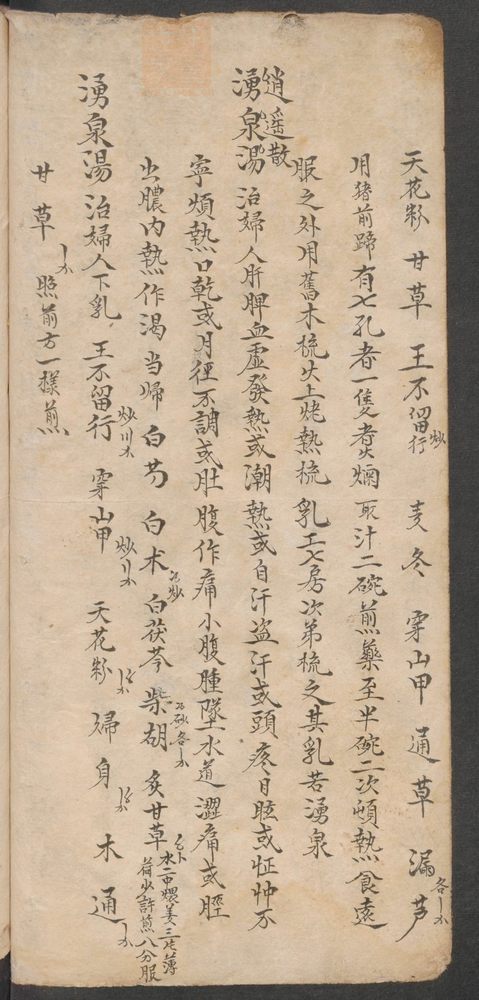 天花粉 甘草 王不留行炒 麦冬 穿山甲 通草 漏芦各
用猪前蹄有七孔者一隻煮爛取汁二碗煎藥至半碗二次頓熱食遠
服之外用舊木梳火上烤熱梳乳上七房次第梳之其乳若湧泉
逍遥散
湧泉湯 治婦人肝脾血虛發熱或潮熱或自汗盗汗或頭疼目眩或怔忡不
寧煩熱口乾或月徑不調或肚腹作痛小腹腫墜水道澀痛或脛
出膿內熱作渴 当歸 白芍 白术 白茯苓 柴胡 炙甘草
水二中煨姜三片薄
荷少許煎八分服
湧泉湯 治婦人下乳 王不留行炒 穿山甲炒 天花粉 歸身 木通
甘草 照前方一樣煎